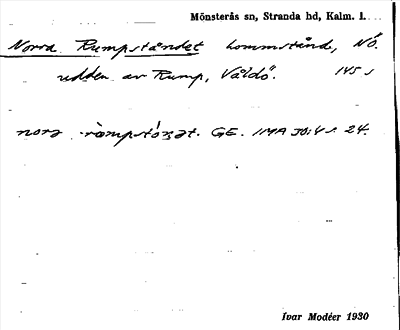 Mönsterås sn, Stranda hd, Kalm. l.
Norra Rumpståndet kommstånd, NÖ.
udden av Rump, Valdö. 145 s
nora
GE. IMA 30:4 s. 24.
Ivar Modéer 1930